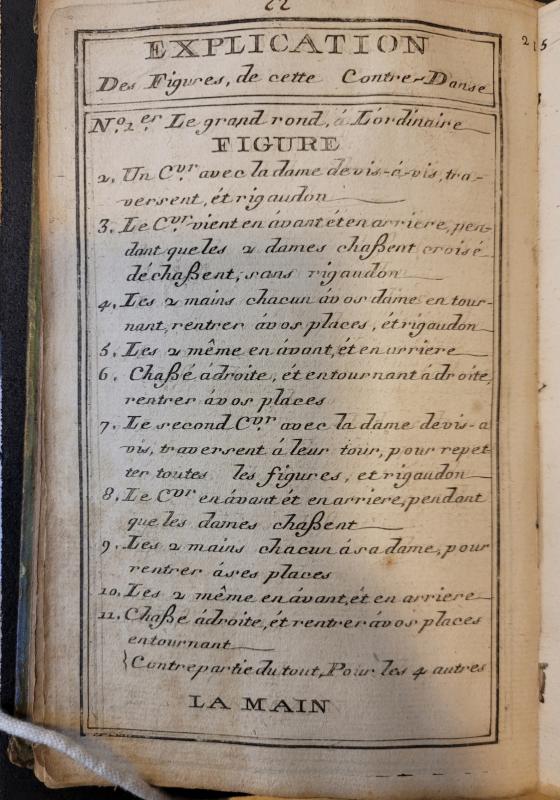 22
215
EXPLICATION
Des Figures, de cette Contre-Danse
N.º 1.er Le grand rond, á L'ordinaire
FIGURE
2. Un C.vr avec la dame de vis-á-vis, tra-
versent, ét rigaudon
3. Le C.vr vient en ávant ét en arriere, pen-
dant que les 2 dames chaßent croisé
déchaßent, sans rigaudon
4. Les 2 mains chacun ávos dame en tour-
nant, rentrer ávos places, ét rigaudon
5. Les 2 même en ávant, ét en arriere
6. Chaßé ádroite, ét entournant ádroite,
rentrer ávos places
7. Le second C.vr avec la dame devis-a
vis, traversent á leur tour, pour repet-
ter toutes les figures, et rigaudon
8. Le C.vr en ávant ét enarriere, pendant
que les dames chaßent
9. Les 2 mains chacun ása dame, pour
rentrer áses places
10. Les 2 même en ávant, ét en arriere
11. Chaßé ádroite, ét rentrer ávos places
entournant
Contrepartie du tout, Pour les 4 autres
LA MAIN